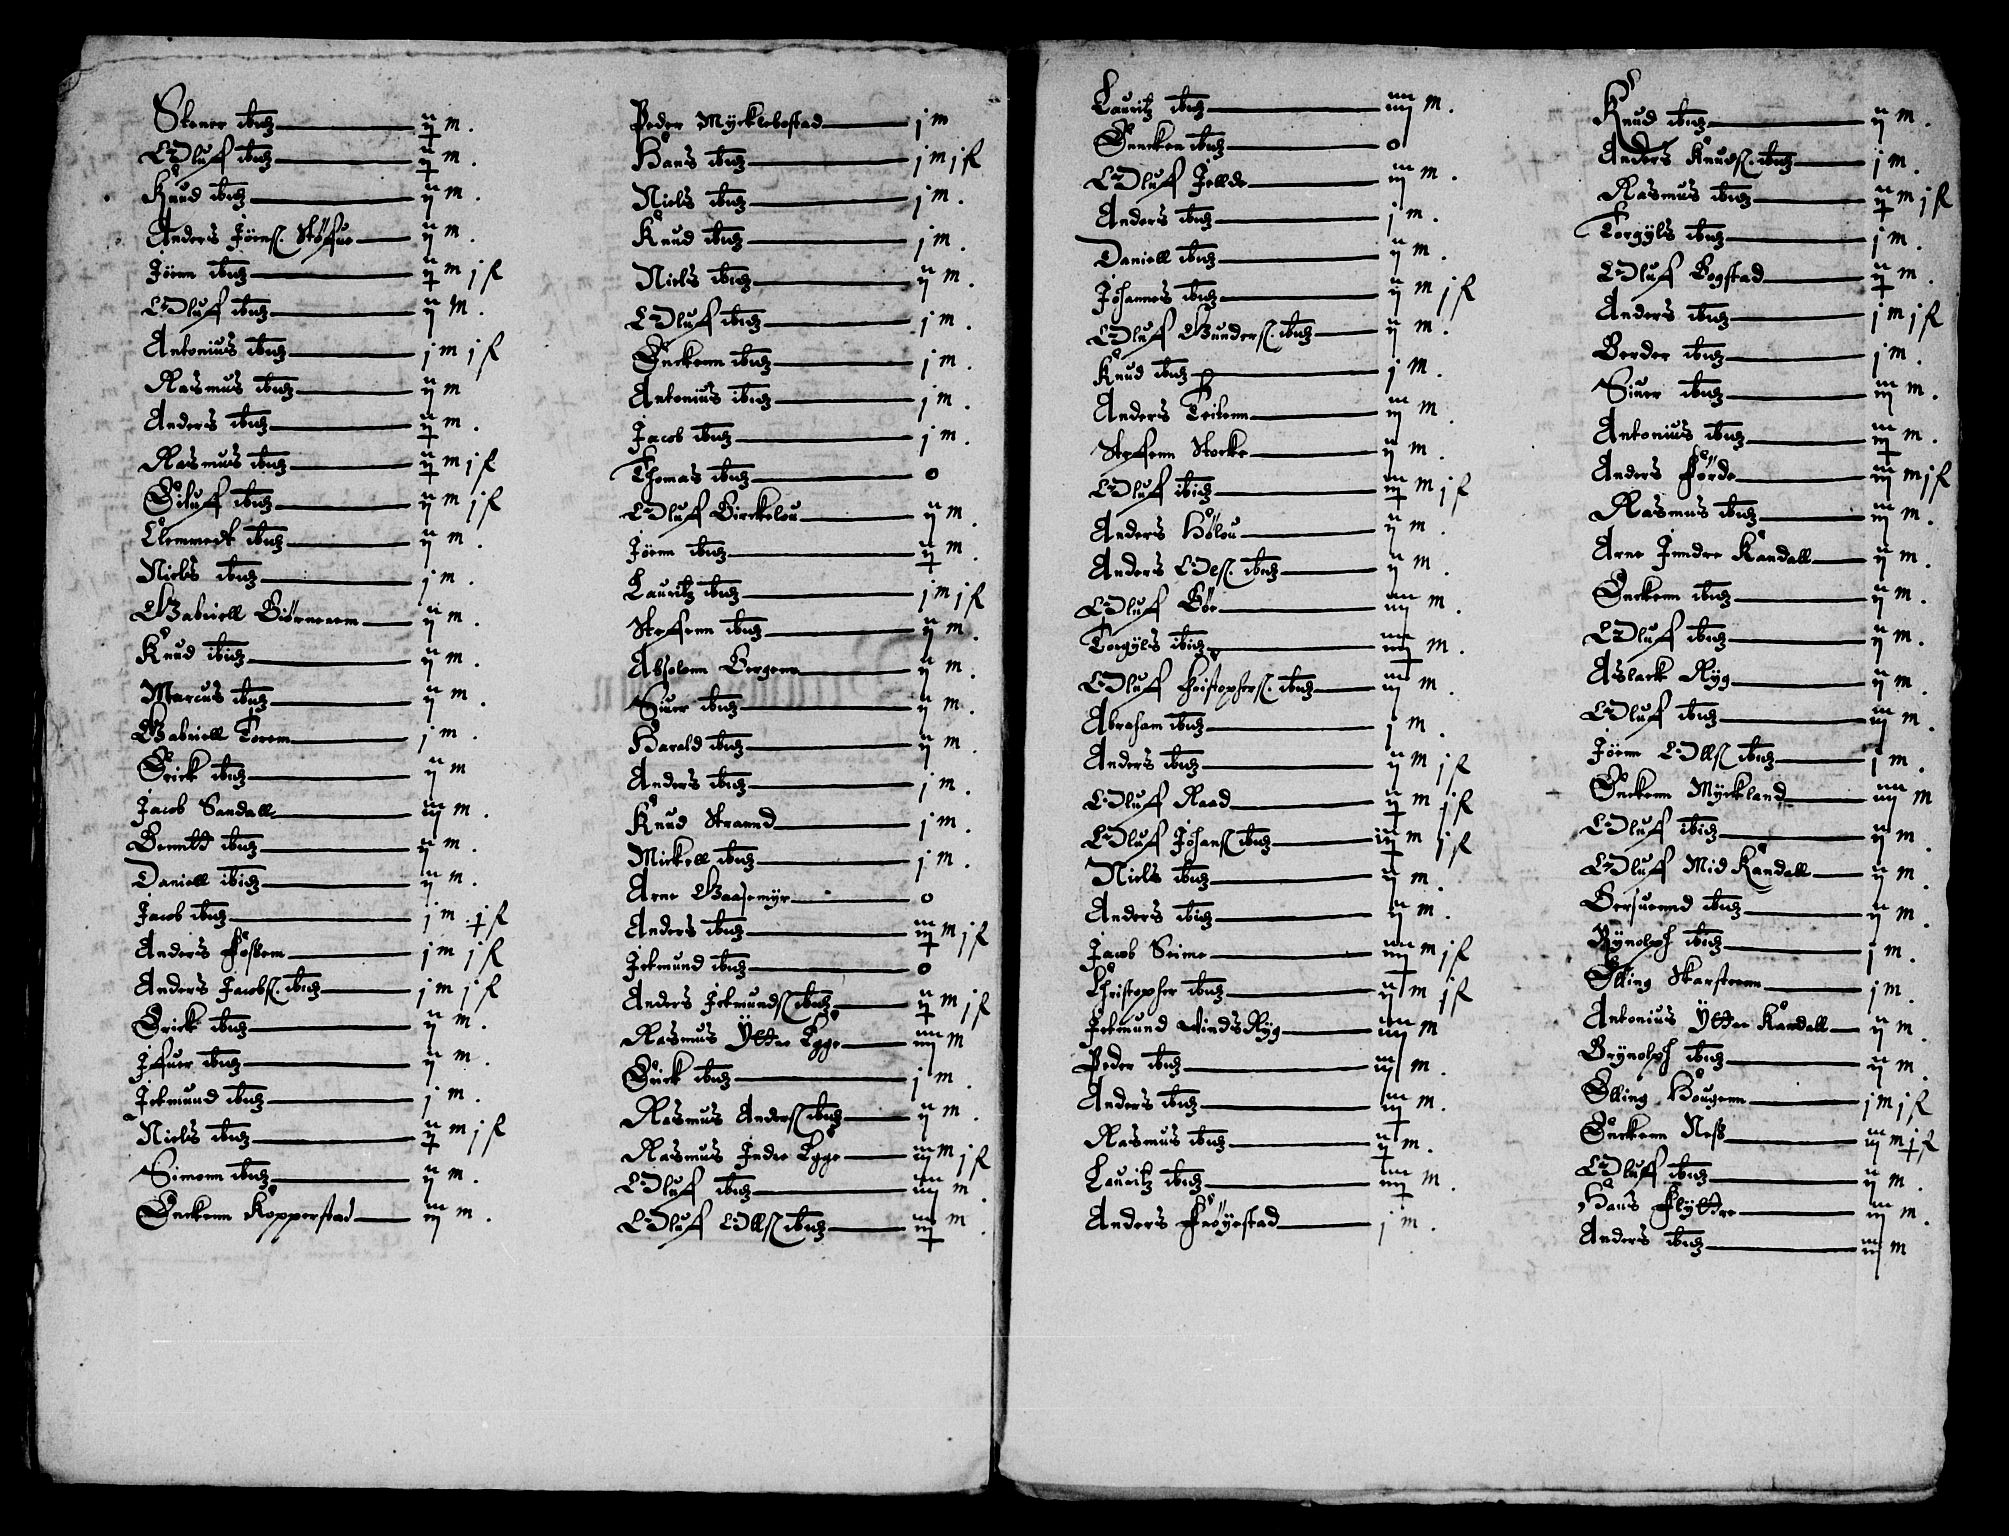 Stener ibid ij m.
Oluff ibid ij m.
Knud ibid ij m.
Anders Jöens. Stöfue ij m.
Jöenn ibid ij m j f
Oluff ibid ij m.
Antonius ibid j m j f
Rasmus ibid ij m
Anders ibid ij m.
Rasmus ibid ij m j f
Siluff ibid ij m j f
Clemmedt ibid ij m.
Niels ibid j m.
Gabriell Biörnerem ij m.
Knud ibid ij m.
Marcus ibid ij m.
Gabriell Torem j m.
Erick ibid ij m
Jacob Sandall iij m.
Bendtt ibid ij m.
Daniell ibid ij m.
Jacob ibid j m. j f
Anders Fosßem j m j f
Anders Jacobs. ibid j m j f
Erick ibid ij m.
Jffuer ibid ij m.
Jckmund ibid j m.
Niels ibid ij m j f
Simonn ibid ij m.
Enckenn Kopperstad iij m.
Peder Mycklebostad j m
Hans ibid j m j f
Niels ibid j m.
Knud ibid j m.
Niels ibid ij m.
Oluff ibid j m.
Enckenn ibid j m.
Antonius ibid j m.
Jacob ibid j m.
Thomas ibid o
Oluff Birckelou ij m.
Jöenn ibid ij m.
Lauritz ibid j m j f
Steffenn ibid ij m.
Absolonn Bergenn ij m.
Siuer ibid ij m.
Harald ibid ij m.
Anders ibid j m.
Knud Strannd j m.
Mickell ibid j m.
Arne Gaasemyr o
Anders ibid iij m j f
Jckmund ibid o
Anders Jckmunds ibid ij m j f
Rasmus Yttre Egge iiij m
Erick ibid j m.
Rasmus Anders ibid ij m.
Rasmus Indre Egge iij m j f
Oluff ibid iiij m.
Oluff Olls ibid iij m.
Lauritz ibid iiij m.
Enncken ibid o
Oluff Jellde iij m.
Anders ibid j m.
Daniell ibid ij m.
Johannes ibid ij m j f
Oluff Gunders. ibid ij m.
Knud ibid j m.
Anders Terkenn iij m.
Steffenn Stocke ij m.
Oluff ibid iij m j f
Anders Hölou ij m.
Anders Oles. ibid ij m.
Oluff Böe iiij m.
Torgyls ibid iiij m.
Oluff Christophers. ibid iij m.
Abraham ibid j m.
Anders ibid ij m j f
Oluff Raad ij m j f
Oluff Johans ibid iij m j f
Niels ibid ij m.
Anders ibid ij m.
Jacob Seime iiij m j f
Christopher ibid ij m j f
Jckmund Winds Ryg iiij m
Peder ibid iij m.
Anders ibid iij m.
Rasmus ibid ij m.
Lauritz ibid iiij m.
Anders Fröyestad j m.
Knud ibid ij m.
Anders Knuds. ibid j m.
Rasmus ibid ij m j f
Torgyls ibid j m.
Oluff Bogstad ij m.
Anders ibid j m j f
Berder ibid j m.
Siuer ibid iij m.
Antonius ibid iij m.
Anders Förde iij m j f
Rasmus ibid iij m.
Arne Inndre Kandall ij m.
Enckenn ibid ij m.
Oluff ibid ij m.
Aslack Ryg ij m.
Oluff ibid iij m.
Jöenn Olls ibid j m.
Enckenn Myckland iiij m
Oluff ibid ij m.
Oluff Mid Kandall ij m.
Bersuennd ibid ij m.
Brynolph ibid j m.
Elling Skarsteenn j m.
Antonius Yttre Kandall ij m.
Brynolph ibid ij m.
Elling Hougenn j m j f
Enckenn Neß iij m j f
Oluff ibid ij m.
Hans Flyttre iij m.
Anders ibid iij m